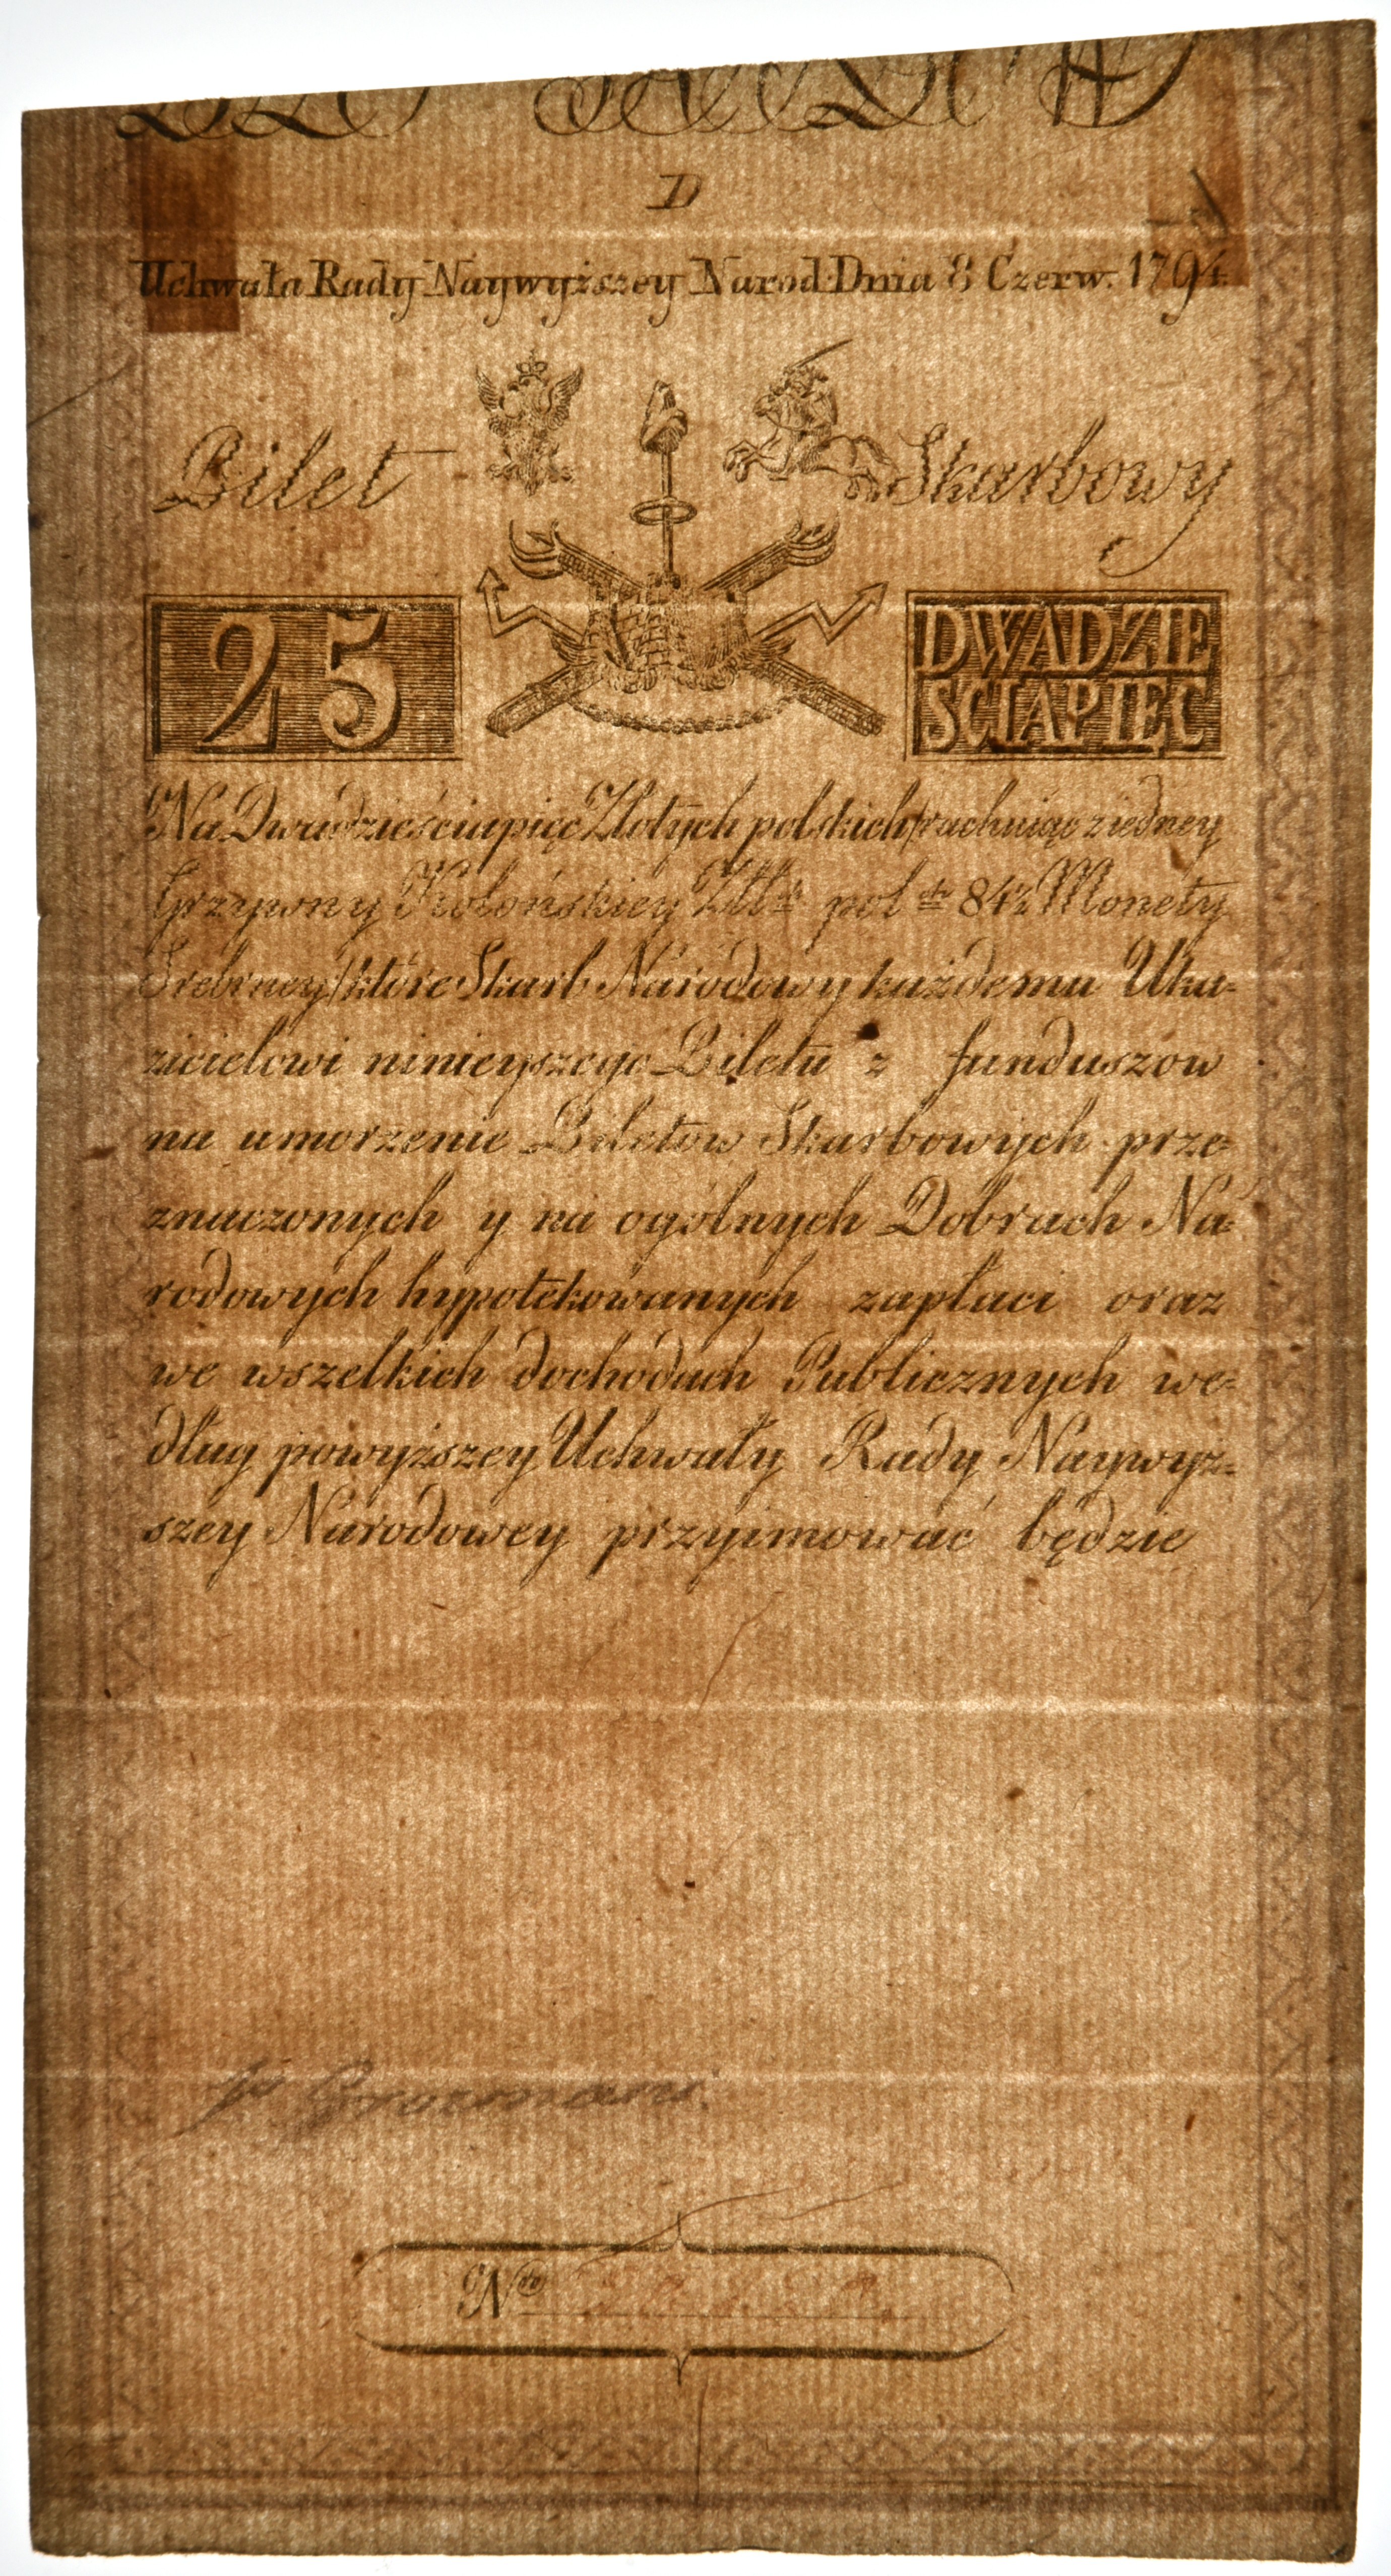 D
Uchwała Rady Naywyższey Narod: Dnia 8 Czerw. 1794.
Bilet Skarbowy
25 DWADZIE
SCIAPIĘC
Na Dwadzieściapięć Złotych polskich /rachuiąc z iedney
Grzywny Kolońskiey Złł: pol: 84½ Monety
Srebrney/ które Skarb Narodowy każdemu Uka-
zicielowi ninieyszego Biletu z funduszow
na umorzenie Biletow Skarbowych prze-
znaczonych y na ogólnych Dobrach Na-
rodowych hypotekowanych zapłaci oraz
we wszelkich dochodach Publicznych we-
dług powyższey Uchwały Rady Naywyż-
szey Narodowey przyimować będzie
No